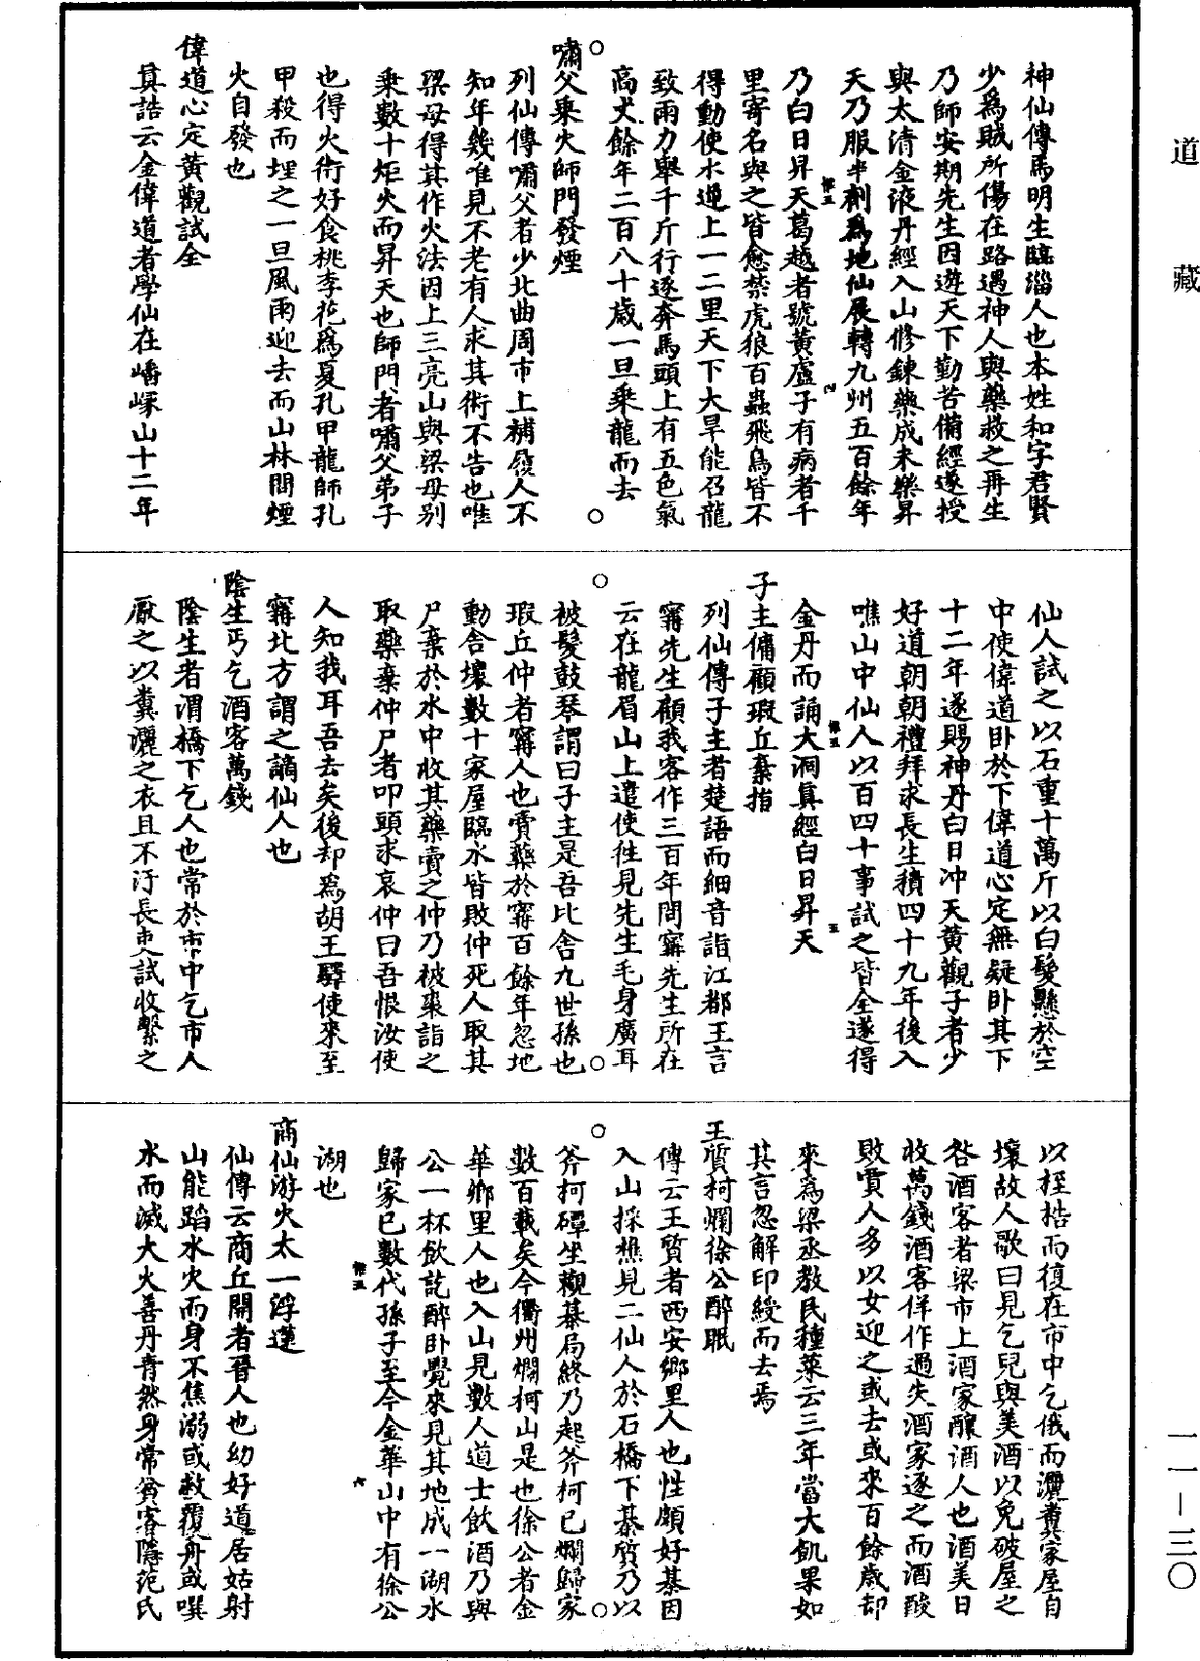 道藏
神仙傳馬明生臨淄人也本姓和字君賢
少爲賊所傷在路遇神人與藥救之再生
乃師安期先生因遊天下勤苦備經遂授
與太清金液丹經入山修鍊藥成未樂昇
天乃服半劑爲地仙展轉九州五百餘年
乃白日昇天葛越者號黃盧子有病者千
里寄名與之皆愈禁虎狼百蟲飛鳥皆不
得動使水逆上一二里天下大旱能召龍
致雨力舉千斤行逐奔馬頭上有五色氣
高丈餘年二百八十歲一旦乘龍而去
嘯父乘火師門發煙
列仙傳嘯父者少北曲周市上補履人不
知年幾唯見不老有人求其術不告也唯
梁母得其作火法因上三亮山與梁母別
乘數十炬火而昇天也師門者嘯父弟子
也得火術好食桃李花爲夏孔甲龍師孔
甲殺而埋之一旦風雨迎去而山林間煙
火自發也
偉道心定黃觀試全
眞誥云金偉道者學仙在嶓嵊山十二年
仙人試之以石重十萬斤以白髮懸於空
中使偉道卧於下偉道心定無疑卧其下
十二年遂賜神丹白日沖天黃觀子者少
好道朝朝禮拜求長生積四十九年後入
噍山中仙人以百四十事試之皆全遂得
金丹而誦大洞眞經白日昇天
子主傭顧瑕丘棄指
列仙傳子主者楚語而細音詣江都王言
甯先生顧我客作三百年問甯先生所在
云在龍眉山上遣使往見先生毛身廣耳
被髮鼓琴謂曰子主是吾比舍九世孫也
瑕丘仲者甯人也賣藥於甯百餘年忽地
動舍壞數十家屋臨水皆敗仲死人取其
尸棄於水中收其藥賣之仲乃被裘詣之
取藥棄仲尸者叩頭求哀仲曰吾恨汝使
人知我耳吾去矣後却爲胡王驛使來至
甯北方謂之謫仙人也
陰生丐乞酒客萬錢
陰生者渭橋下乞人也常於市中乞市人
厭之以糞灑之衣且不汙長吏試收繫之
以桎梏而復在市中乞俄而灑糞家屋自
壞故人歌曰見乞兒與美酒以免破屋之
咎酒客者梁市上酒家釀酒人也酒美日
收萬錢酒客佯作過失酒家逐之而酒酸
敗賈人多以女迎之或去或來百餘歲却
來爲梁丞教民種菜云三年當大飢果如
其言忽解印綬而去焉
王質柯爛徐公醉眠
傳云王質者西安鄉里人也性頗好棊因
入山採樵見二仙人於石橋下棊質乃以
斧柯磹坐觀棊局終乃起斧柯已爛歸家
數百載矣今衢州爛柯山是也徐公者金
華鄉里人也入山見數人道士飲酒乃與
公一杯飲訖醉卧覺來見其地成一湖水
歸家已數代孫子至今金華山中有徐公
湖也
商仙游火太一浮蓮
仙傳云商丘開者晉人也幼好道居姑射
山能蹈水火而身不焦溺或救覆舟或噀
水而滅大火善丹青然身常貧客隱范氏
一一—三〇